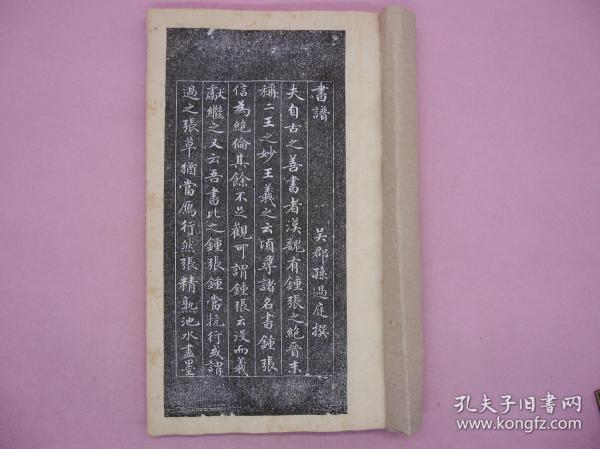 書譜 吳郡孫過庭撰
夫自古之善書者漢魏有鍾張之絕晉末
稱二王之妙王羲之云頃尋諸名書鍾張
信為絕倫其餘不足觀可謂鍾張云沒而羲
獻繼之又云吾書比之鍾張鍾當抗行或謂
過之張草猶當鴈行然張精熟池水盡墨
孔夫子旧书网
www.kongfz.com